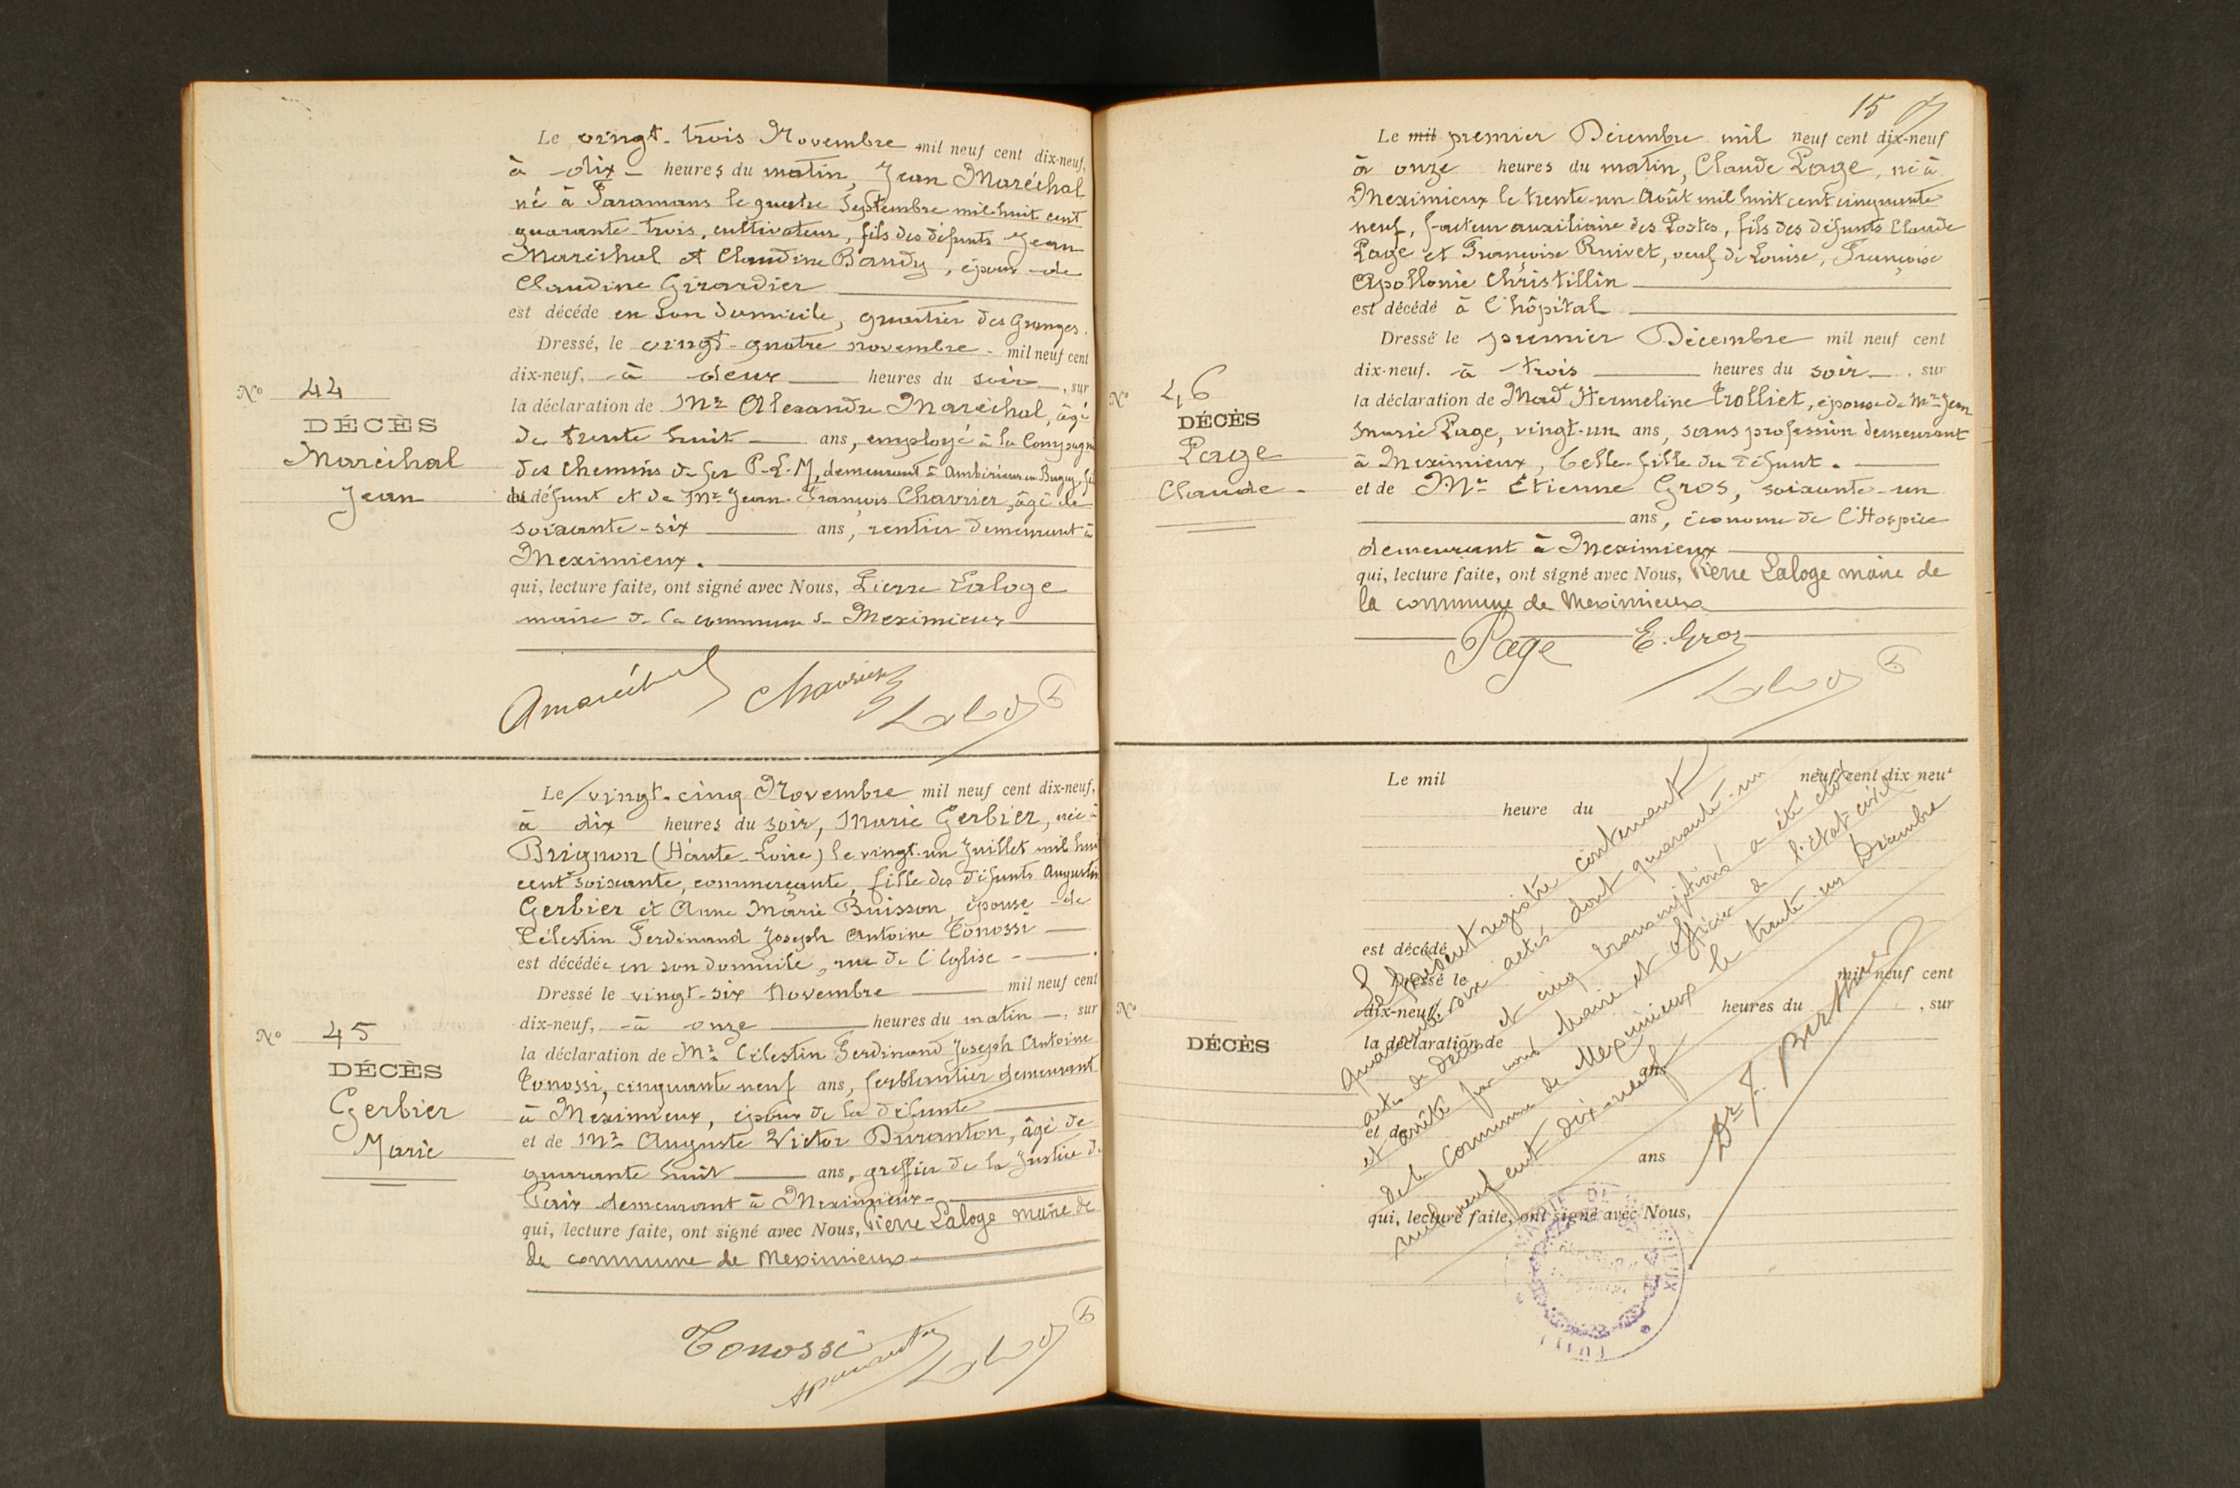 Nº 44
DÉCÈS
Maréchal
Jean
Le vingt-trois Novembre mil neuf cent dix-neuf,
à dix heures du matin, Jean Maréchal
né à Faramans le quatre Septembre mil huit cent
quarante-trois, cultivateur, fils des défunts Jean
Maréchal et Claudine Bandy, époux de
Claudine Girardier
est décédé en son domicile, quartier des Granges.
Dressé, le vingt-quatre novembre mil neuf cent
dix-neuf, à deux heures du soir, sur
la déclaration de Mr Alexandre Maréchal, âgé
de trente huit ans, employé à la Compagnie
des chemins de fer P-L-M, demeurant à Ambérieu en Bugey, fils
du défunt et de Mr Jean-François Chavrier, âgé de
soixante-six ans, rentier demeurant à
Meximieux.
qui, lecture faite, ont signé avec Nous, Pierre Laloge
maire de la commune de Meximieux
AMaréchal Chavrier Laloge
Nº 45
DÉCÈS
Gerbier
Marie
Le vingt-cinq Novembre mil neuf cent dix-neuf,
à dix heures du soir, Marie Gerbier, née à
Brignon (Haute-Loire) le vingt-un Juillet mil huit
cent soixante, commerçante, fille des défunts Augustin
Gerbier et Anne Marie Buisson, épouse de
Célestin Ferdinand Joseph Antoine Tonossi
est décédée en son domicile, rue de l'Eglise
Dressé le vingt-six novembre mil neuf cent
dix-neuf, à onze heures du matin, sur
la déclaration de Mr Célestin Ferdinand Joseph Antoine
Tonossi, cinquante neuf ans, ferblantier demeurant
à Meximieux, époux de la défunte
et de Mr Auguste Victor Duranton, âgé de
quarante huit ans, greffier de la Justice de
Paix demeurant à Meximieux
qui, lecture faite, ont signé avec Nous, Pierre Laloge maire de
la commune de Meximieux
Tonossi
Laloge
15
Nº 46
DÉCÈS
Page
Claude
Le mil premier Décembre mil neuf cent dix-neuf
à onze heures du matin, Claude Page, né à
Meximieux le trente-un Août mil huit cent cinquante
neuf, facteur auxiliaire des Postes, fils des défunts Claude
Page et Françoise Ruivet, veuf de Louise, Françoise
Apollonie Christillin
est décédé à l'hôpital
Dressé le premier Décembre mil neuf cent
dix-neuf. à trois heures du soir, sur
la déclaration de Made Hermeline Trolliet, épouse de Mr Jean
Marie Page, vingt-un ans, sans profession demeurant
à Meximieux, belle-fille du défunt.
et de Mr Étienne Gros, soixante-un
ans, économe de l'Hospice
demeurant à Meximieux
qui, lecture faite, ont signé avec Nous, Pierre Laloge maire de
la commune de Meximieux
Page E. Gros
Laloge
Nº
DÉCÈS
Le mil neuf cent dix neuf
heure du
est décédé
Dressé le mil neuf cent
dix-neuf, heures du , sur
la déclaration de
ans
et de
ans
qui, lecture faite, ont signé avec Nous,
Le présent registre contenant
quarante six actes dont quarante-un
actes de décès et cinq transcriptions a été clos
et arrêté par nous Maire et officier de l'état civil
de la commune de Meximieux le trente-un Décembre
mil neuf cent dix-neuf